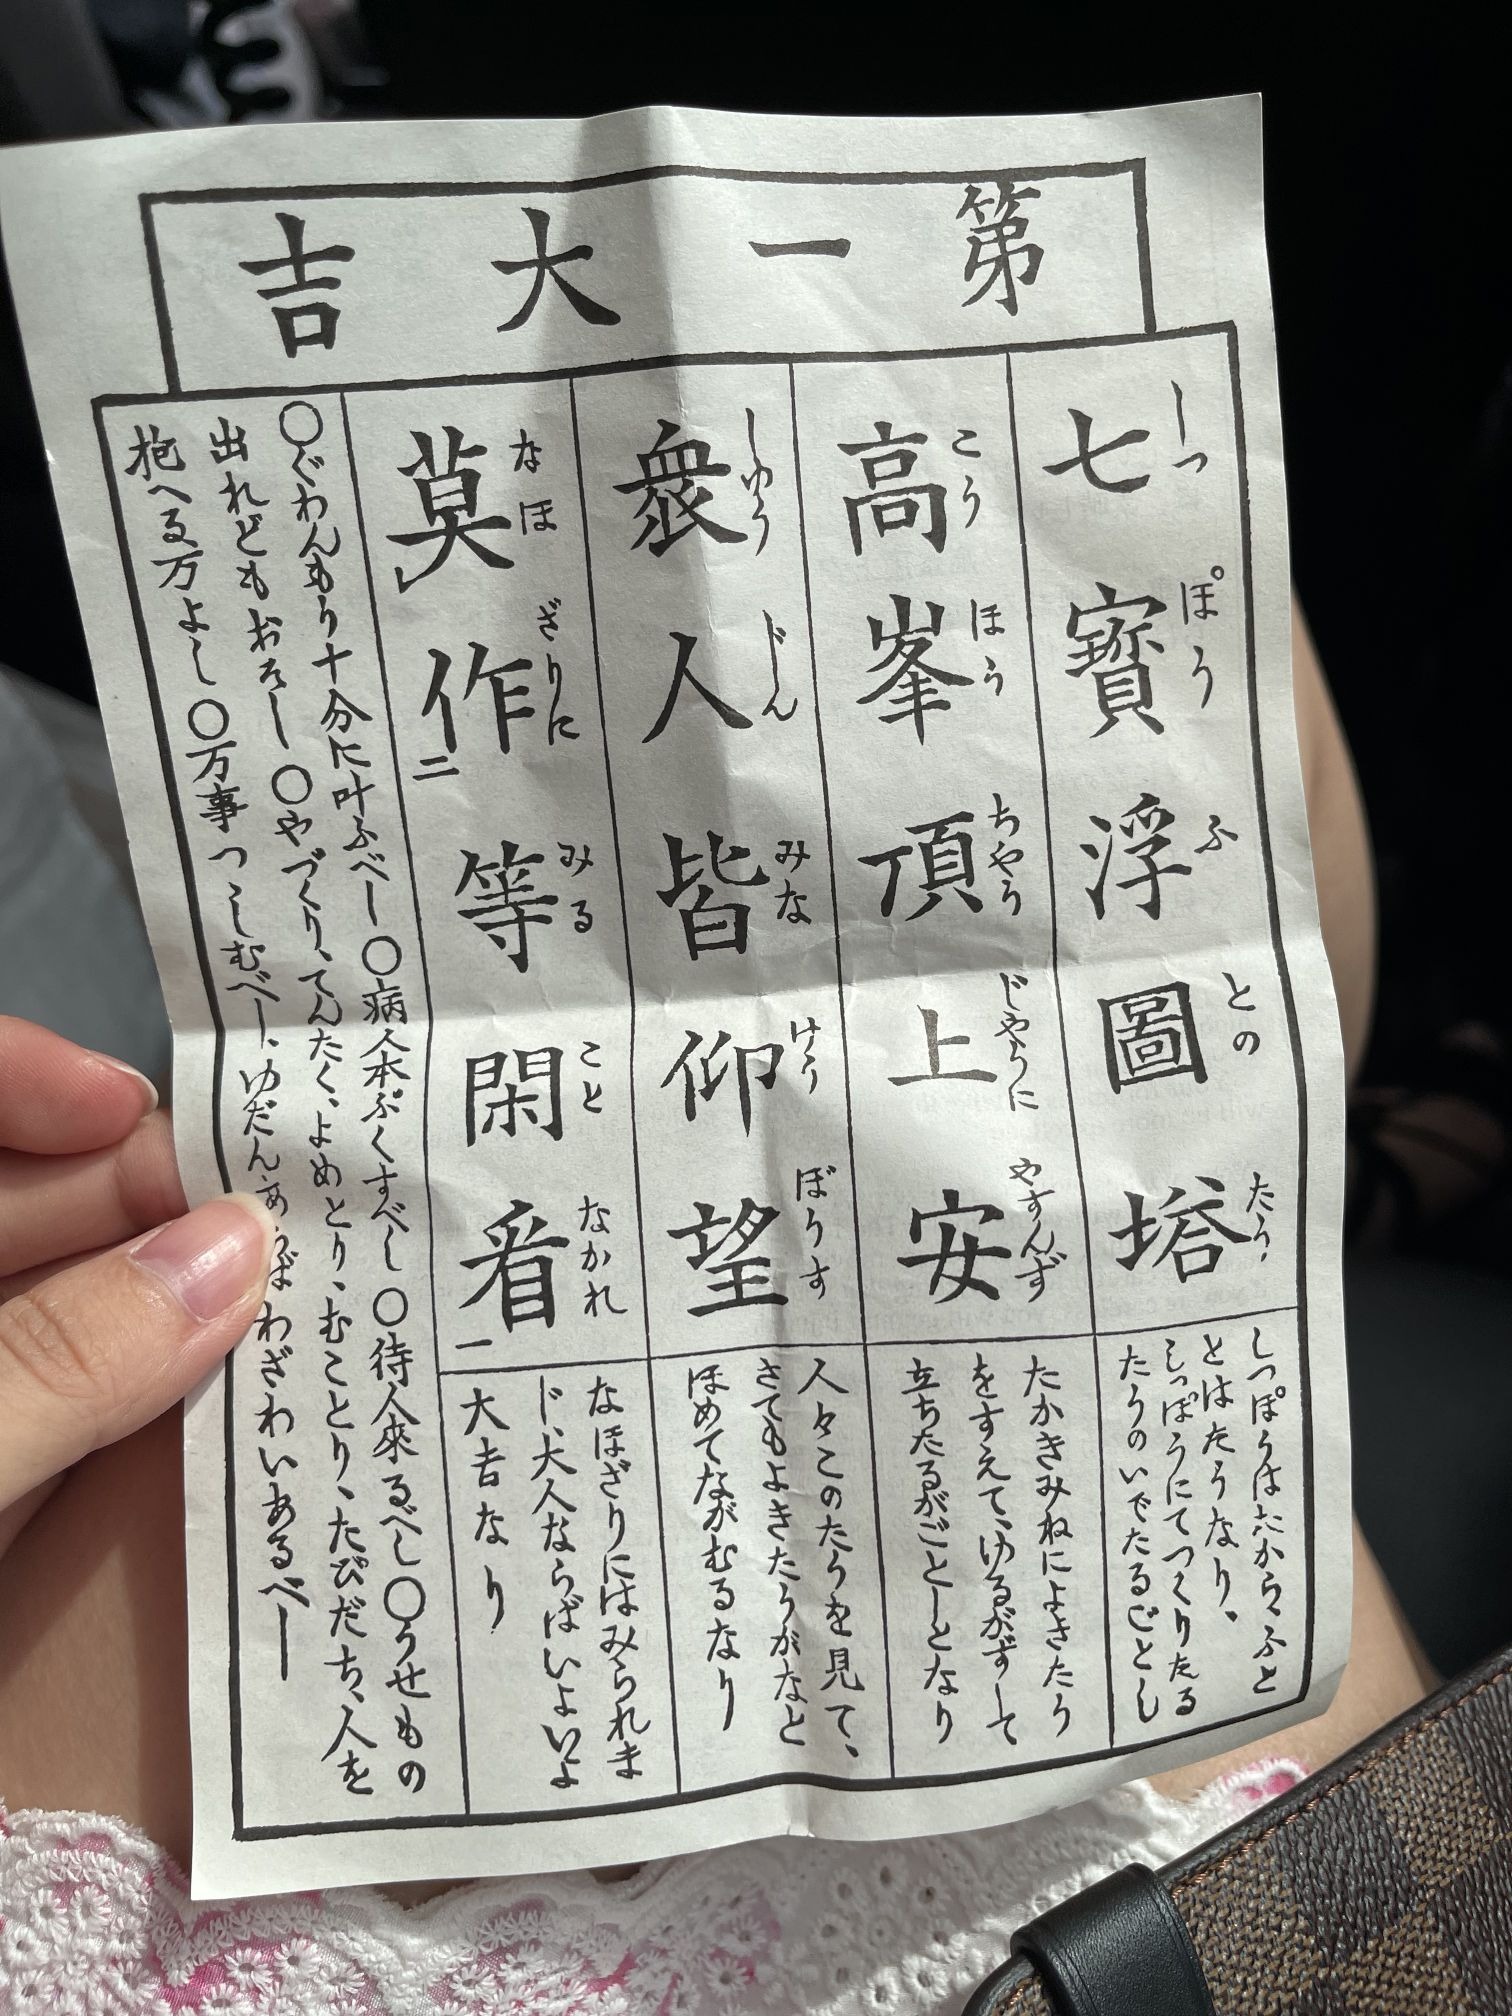 第一大吉
七寶浮圖塔
しつぽうふとのたう、
しっぽうはたから、ふと
とはたうなり。
しっぽうにてつくりたる
たうのいでたるごとし
高峯頂上安
こうほうちやうじやうにやすんず
たかきみねによきたう
をすえて、ゆるがずして
立ちたるがごとしとなり
衆人皆仰望
しゆうじんみなけうぼうす
人々このたうを見て、
さてもよきたうがなと
ほめてながむるなり
莫作二等閑看一
なほざりにみることなかれ
なほざりにはみられま
じ、大人ならばいよいよ
大吉なり
〇ぐわんもう十分に叶ふべし〇病人本ぷくすべし〇待人來るべし〇うせもの
出れどもおそし〇やづくり、てんたく、よめとり、むことり、たびだち、人を
抱へる万よし〇万事つゝしむべし、ゆだんわざわいあるべし